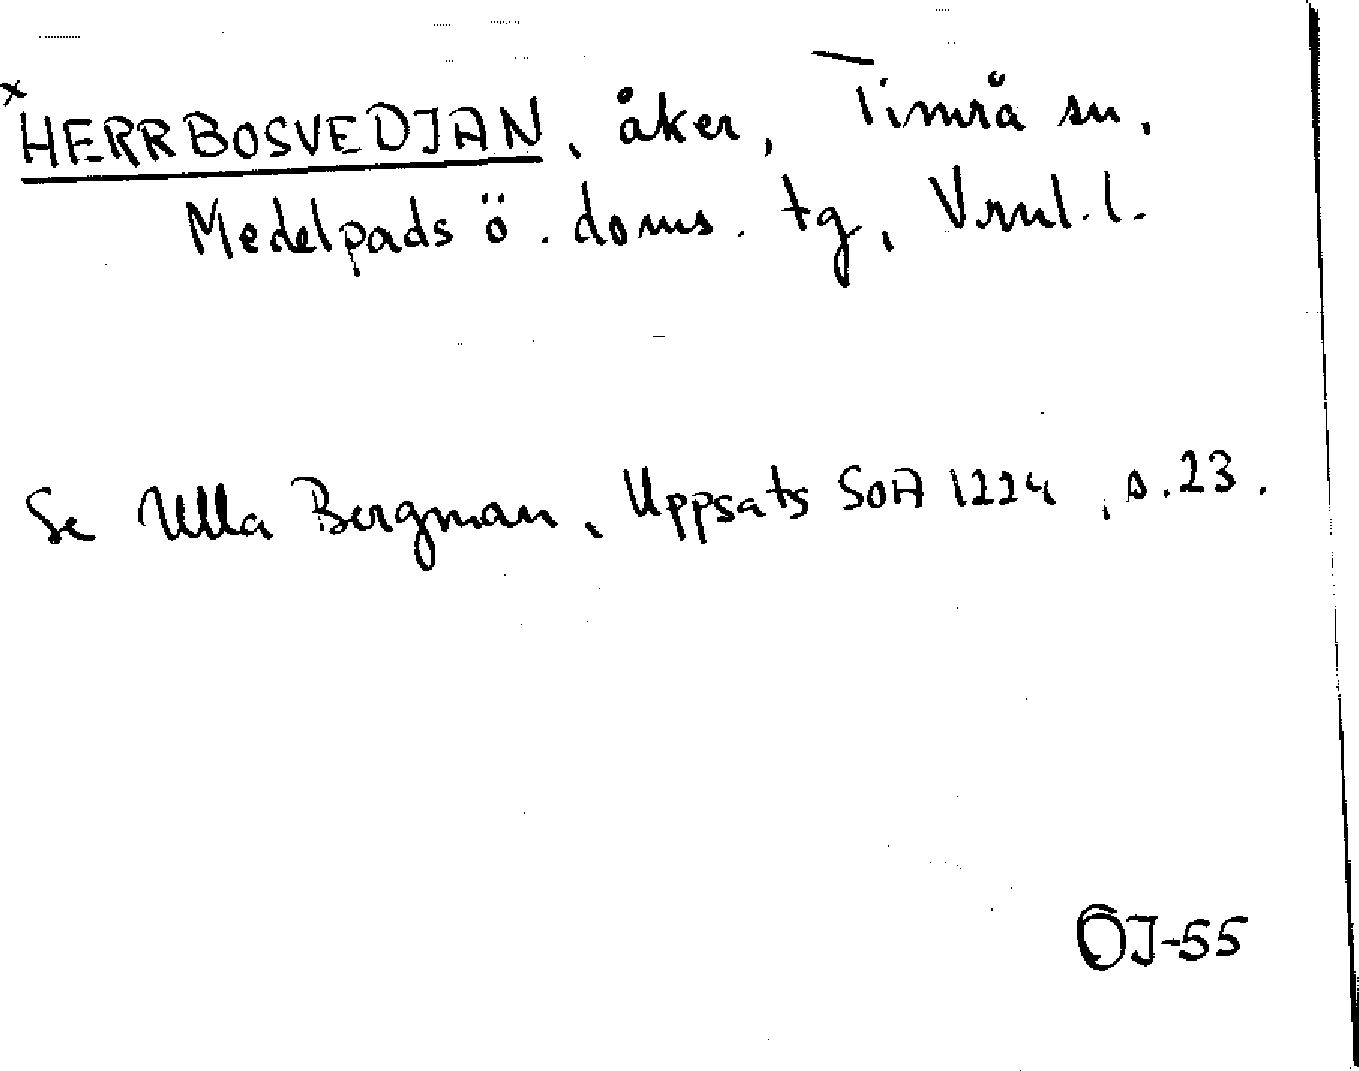 x HERRBOSVEDJAN, åker, Timrå sn,
Medelpads ö. doms. tg, Vrnl. l.
Se Ulla Bergman, Uppsats SOA 1224, s. 23.
ÖJ-55